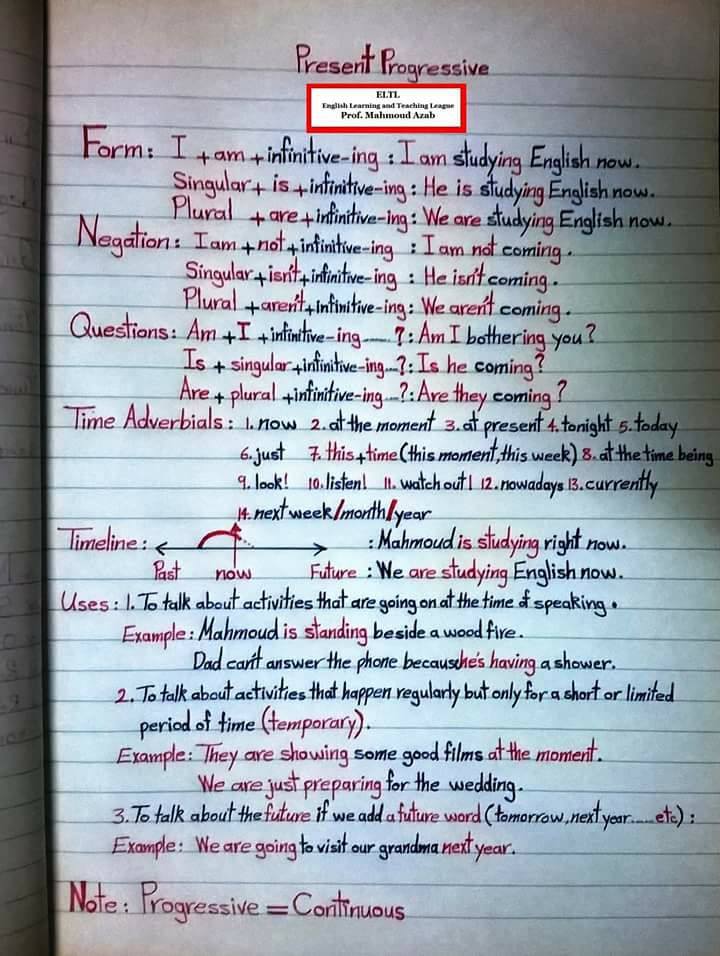 Present Progressive
ELTL
English Learning and Teaching League
Prof. Mahmoud Azab
Form: I +am +infinitive-ing : I am studying English now.
Singular+ is +infinitive-ing : He is studying English now.
Plural +are+infinitive-ing : We are studying English now.
Negation: I am +not+infinitive-ing : I am not coming.
Singular+isn't+infinitive-ing : He isn't coming.
Plural +aren't+infinitive-ing : We aren't coming.
Questions: Am +I +infinitive-ing......?: Am I bothering you?
Is + singular+infinitive-ing...?: Is he coming?
Are + plural +infinitive-ing...?: Are they coming?
Time Adverbials: 1. now 2. at the moment 3. at present 4. tonight 5. today
6. just 7. this+time (this moment, this week) 8. at the time being
9. look! 10. listen! 11. watch out! 12. nowadays 13. currently
14. next week/month/year
Timeline: : Mahmoud is studying right now.
Past now Future : We are studying English now.
Uses: 1. To talk about activities that are going on at the time of speaking.
Example: Mahmoud is standing beside a wood fire.
Dad can't answer the phone because he's having a shower.
2. To talk about activities that happen regularly but only for a short or limited
period of time (temporary).
Example: They are showing some good films at the moment.
We are just preparing for the wedding.
3. To talk about the future if we add a future word (tomorrow, next year......etc) :
Example: We are going to visit our grandma next year.
Note: Progressive = Continuous